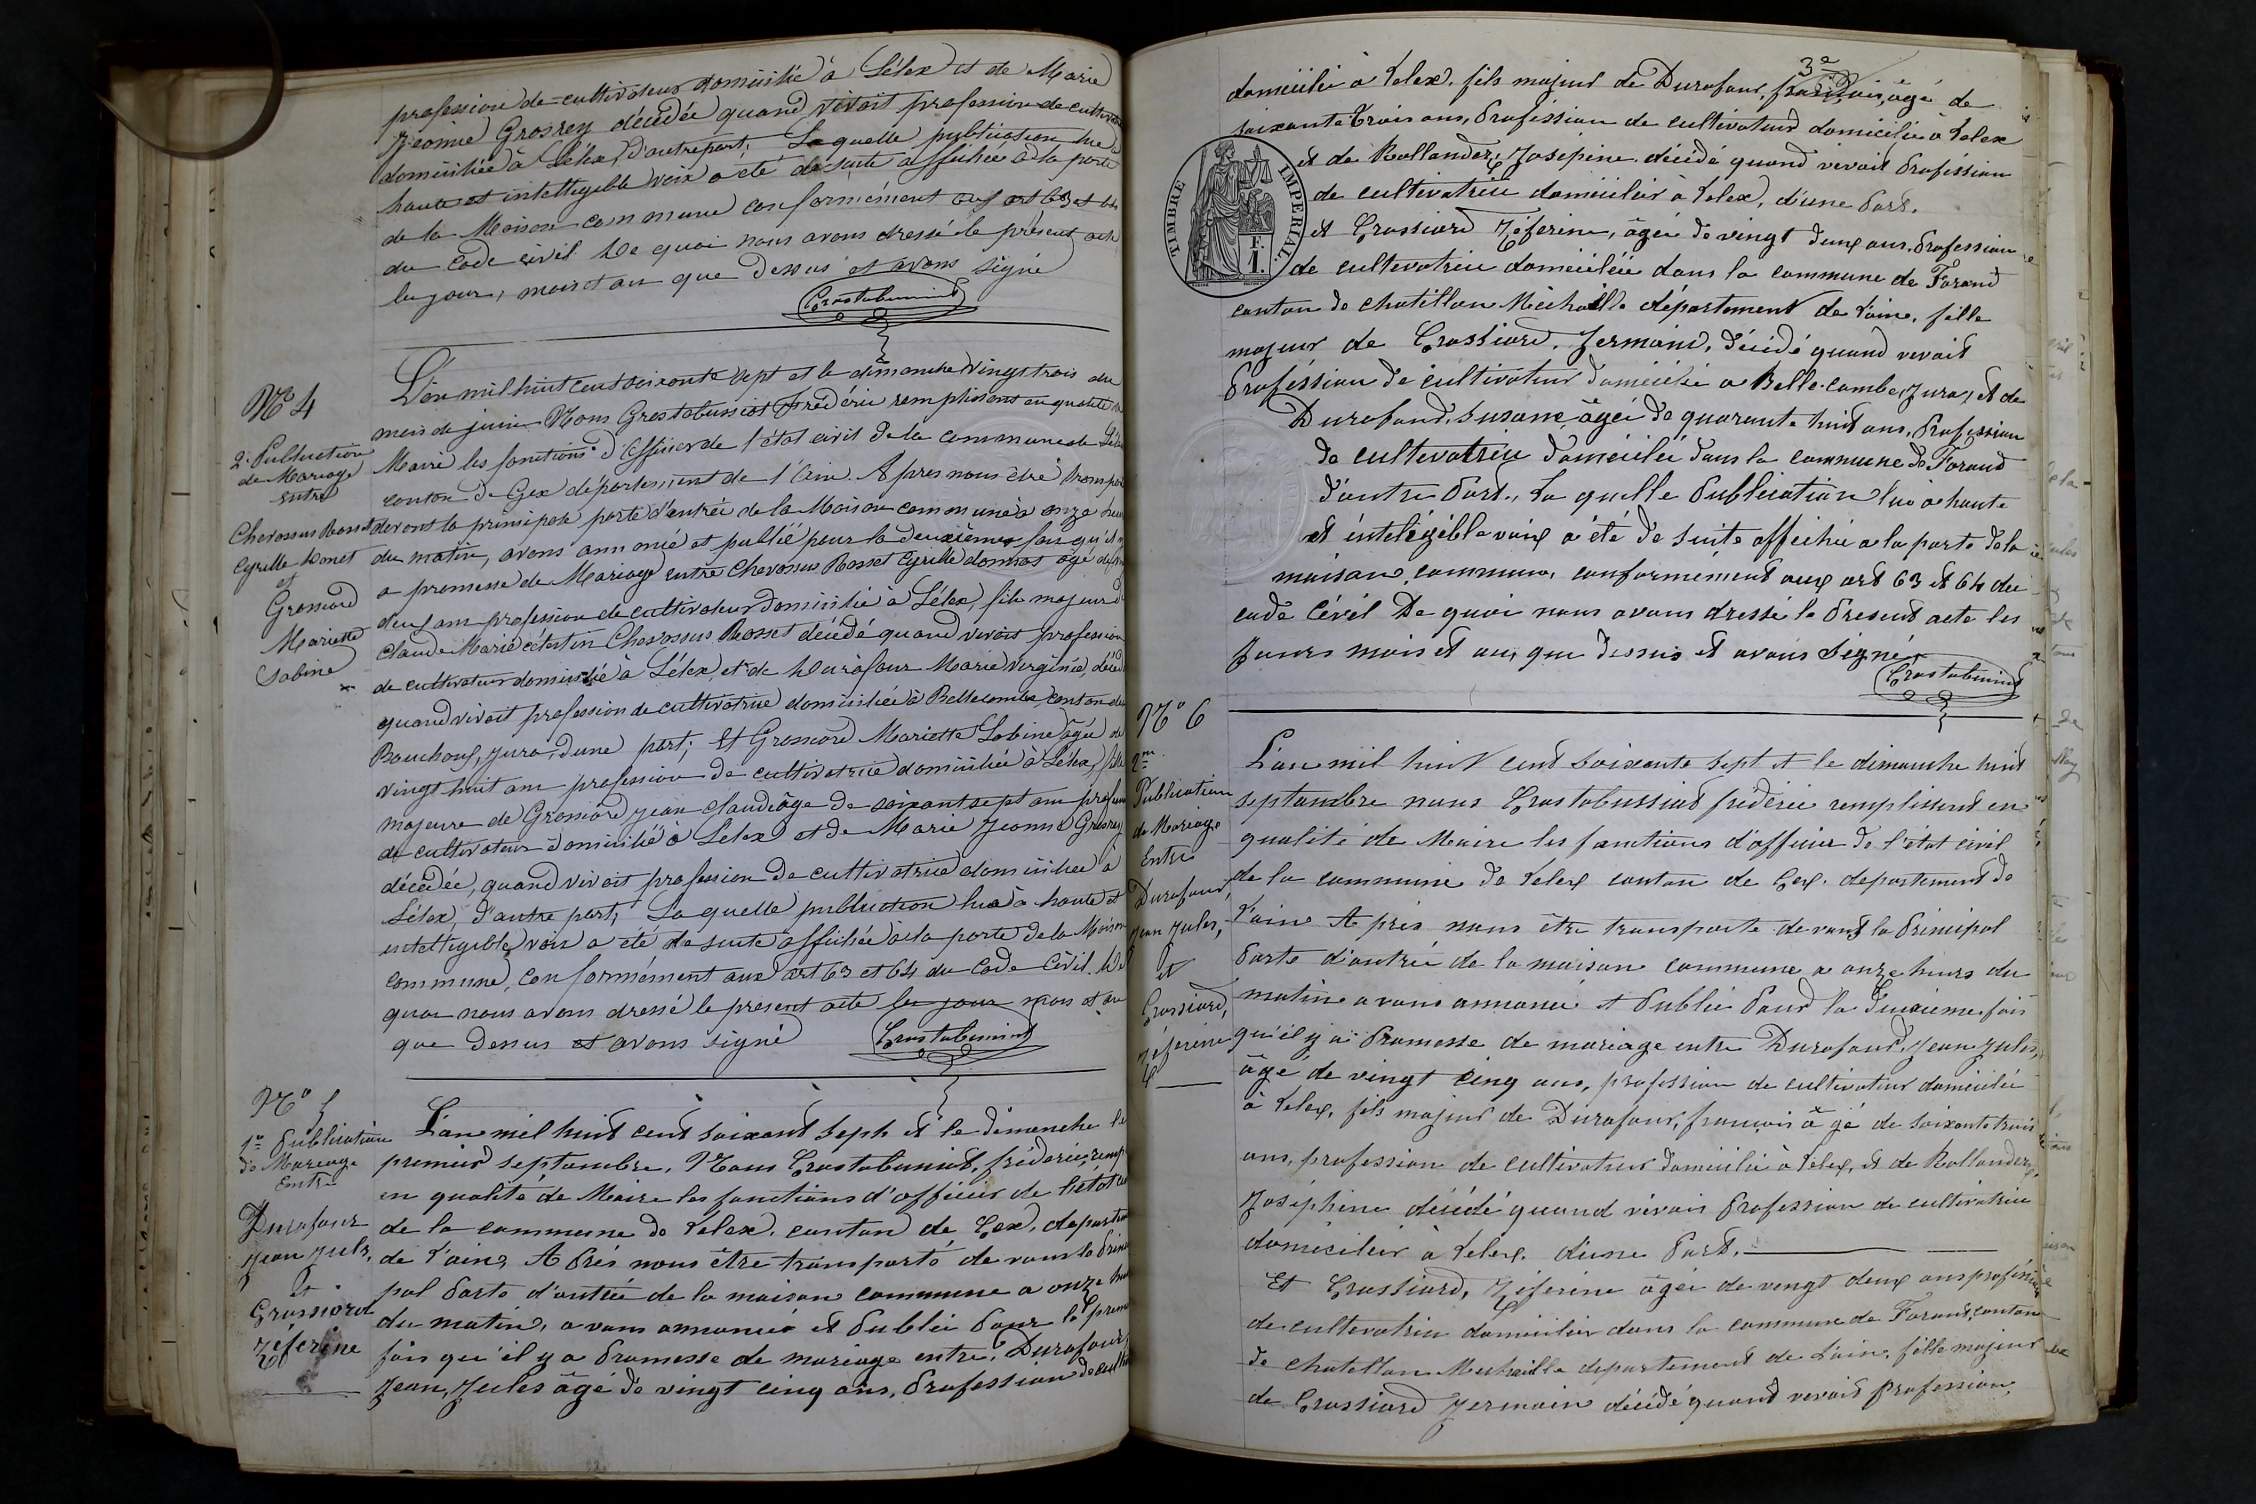 profession de cultivateur domicilié à Lélex et de Marie
Jeanne Grosrey décédée quand vivait profession de cultivat
domiciliée à Lélex, d'autre part; Laquelle publication lue à
haute et intelligible voix a été de suite affichée à la porte
de la Maison commune conformément aux art 63 et 64
du Code civil. De quoi nous avons dressé le présent acte
les jour, mois et an que dessus et avons signé
Grostabussiat
N° 4
2e Publication
de Mariage
entre
Chevassus Rosset
Cyrille Donat
et
Grossiord
Mariette
Sabine
L'an mil huit cent soixante sept et le dimanche vingt trois du
mois de juin Nous Grostabussiat Frédéric remplissant en qualité de
Maire les fonctions d'officier de l'état civil de la commune de Lélex
canton de Gex département de l'Ain. Apres nous être transporté
devant la principale porte d'entrée de la Maison commune à onze heures
du matin, avons annoncé et publié pour la deuxième fois qu'il y
a promesse de Mariage entre Chevassus Rosset Cyrille Donat agé de
deux ans profession de cultivateur domicilié à Lélex, fils majeur de
Claude Marie Célestin Chevassus Rosset décédé quand vivait profession
de cultivateur domicilié à Lélex, et de Durafour Marie Virginie, décéd
quand vivait profession de cultivatrice domiciliée à Bellecombe, canton de
Bouchoux, Jura, d'une part; Et Grossiord Mariette Sabine âgée de
vingt huit ans profession de cultivatrice domiciliée à Lélex, fille
majeure de Grossiord Jean Claude âge de soixant sept ans profession
de cultivateur domicilié à Lélex et de Marie Jeanne Grosrey
décédée, quand vivait profession de cultivatrice domiciliée à
Lélex, d'autre part; Laquelle publication lue à haute et
intelligible voix a été de suite affichée à la porte de la Maison
commune, conformément aux art 63 et 64 du Code Civil. De
quoi nous avons dressé le present acte les jour mois et an
que dessus et avons signé
Grostabussiat
N° 5
1re Publication
de Mariage
Entre
Durafour
Jean Jules,
et
Grossiord
Zéferine
L'an mil huit cent soixant sept et le dimanche le
premier septembre, Nous Grostabussiat, frédéric, remp
en qualité de Maire les fonctions d'officier de l'état ci
de la commune de Lelex, canton de Gex, départem
de l'ain, A près nous être transporté de vant la princi
pal porte d'entrée de la maison commune a onze heur
du matin, a vons annoncé et publié pour la prem
fois qu'il y a promesse de mariage entre, Durafour,
Jean, Jules âgé de vingt cinq ans, profession de cult
3e
domicilié à Lelex, fils majeur de Durafour, françois, âgé de
soixante trois ans, profession de cultivateur domicilié à Lelex
et de Rollandez, Joséphine décédé quand vivait profession
de cultivatrice domicilier à Lelex, d'une part.
TIMBRE IMPERIAL.
F.
1.
et Grossiord Zéferine, âgée de vingt deux ans, profession
de cultivatrice domiciliée dans la commune de Forand
canton de Chatillon Michaille département de l'ain, fille
majeur de Grossiord, Jermain, décédé quand vivait
profession de cultivateur domicilié a Belle-combe, Jura, et de
Durafourd, Susane, âgée de quarante huit ans, profession
de cultivatrice domiciliée dans la commune de Forand
d'autre part, La quelle publication lue a haute
et intelégible voix a été de suite affichée a la porte de la
maison, commune, conformément aux art 63 et 64 du
code Cévil De quoi nous avons dressé le present acte les
Jours mois et an, que dessus et avons signé
Grostabussiat
N° 6
2me
Publication
de Mariage
Entre
Durafour,
Jean Jules,
et
Grossiord,
Zéferine
L'an mil huit cent soixante sept et le dimanche huit
septembre nous Grostabussiat frédéric remplissent en
qualité de Maire les fonctions d'officier de l'état civil
de la commune de Lelex canton de Gex. departement de
l'ain A près nous être transporte de vant la principal
porte d'entrée de la maison commune a onze heurs du
matin a vons annoncé et publié pour la Deuxieme fois
qu'il y a promesse de mariage entre Durafourd, Jean Jules,
âgé de vingt cinq ans, profession de cultivateur domicilié
à Lelex, fils majeur de Durafour, françois â gé de soixante trois
ans, profession de cultivateur domicilié à Lelex, et de Rollandez,
Joséphine décédé quand vivais profession de cultivatrice
domicilier à Lelex. d'une part.
Et Grossiord, Zéferine âgée de vingt deux ans profession
de cultivatrice domicilier dans la commune de Forand, canton
de Chatillon Michaille departement de l'ain, fille majeur
de Grossiord Jermain décédé quand vivait profession,